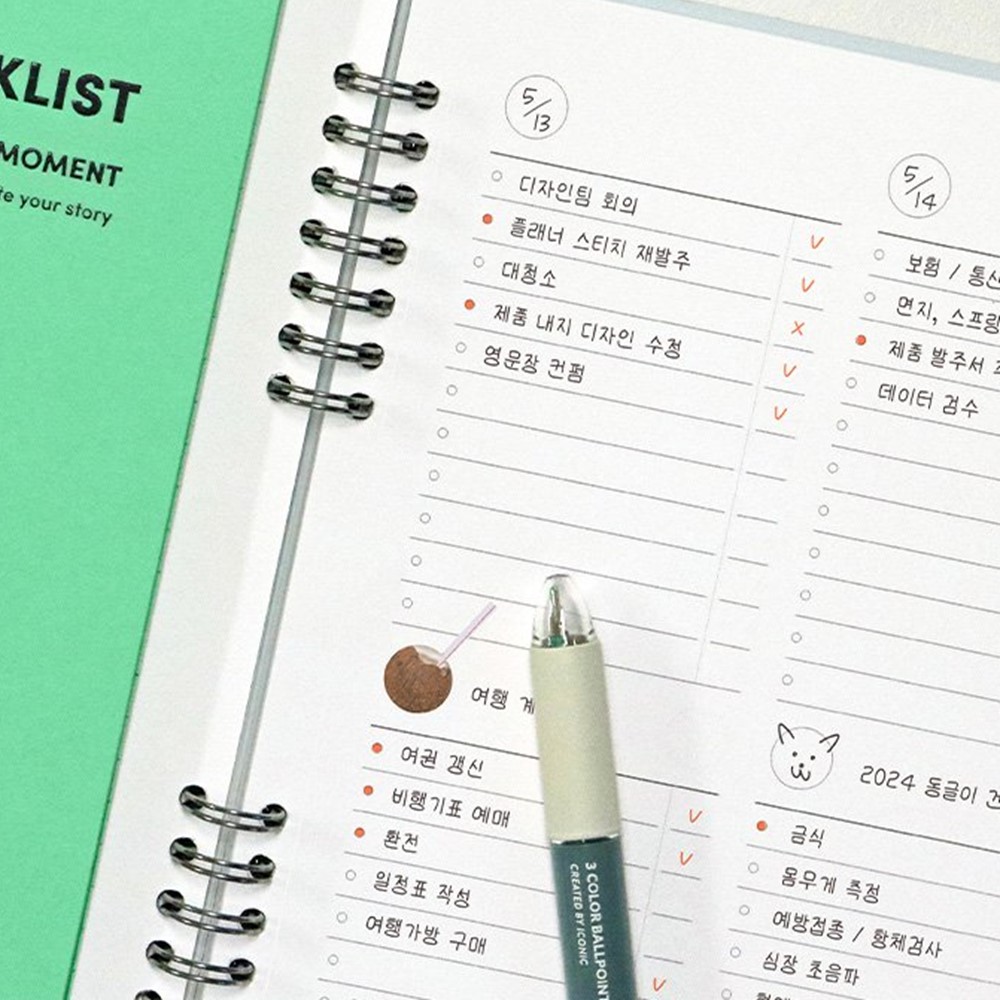 KLIST
MOMENT
te your story
5/13
디자인팀 회의
플래너 스티치 재발주
대청소
제품 내지 디자인 수정
영문장 컨펌
5/14
보험 / 통신
면지, 스프링
제품 발주서
데이터 검수
여행
여권 갱신
비행기표 예매
환전
일정표 작성
여행가방 구매
2024 동글이
금식
몸무게 측정
예방접종 / 항체검사
심장 초음파
3 COLOR BALLPOINT
CREATED BY ICONIC